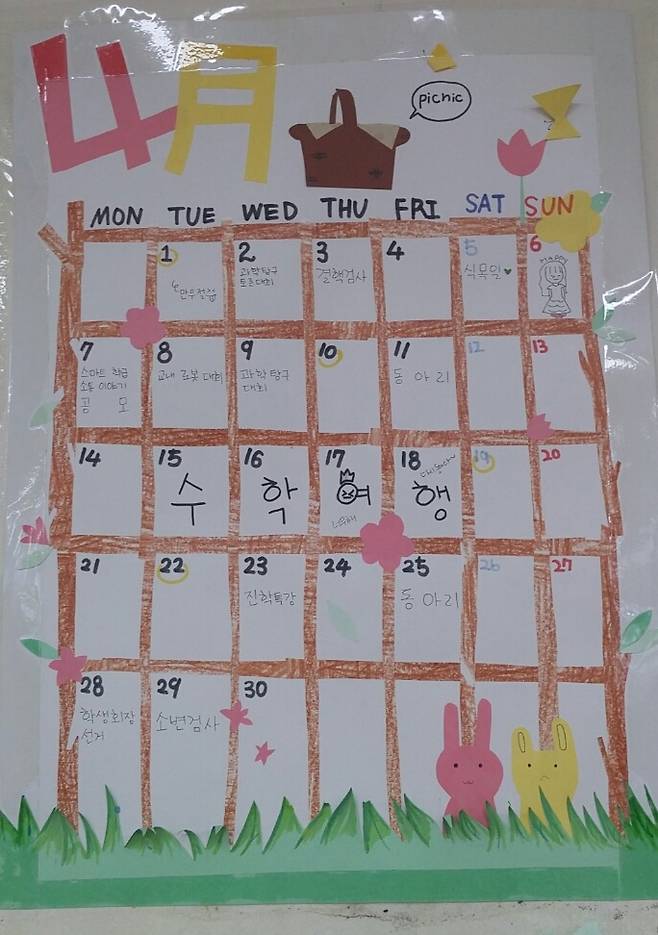 4月
picnic
MON TUE WED THU FRI SAT SUN
1 2 3 4 5 6
만우절
과학탐구
토론대회
결핵검사
식목일
HAPPY
7 8 9 10 11 12 13
스마트 학급
소통 이야기
공 모
교내 로봇 대회
과학탐구
대회
동 아 리
14 15 16 17 18 19 20
수 학 여 행
21 22 23 24 25 26 27
진학특강
동 아 리
28 29 30
학생회장
선거
소변검사